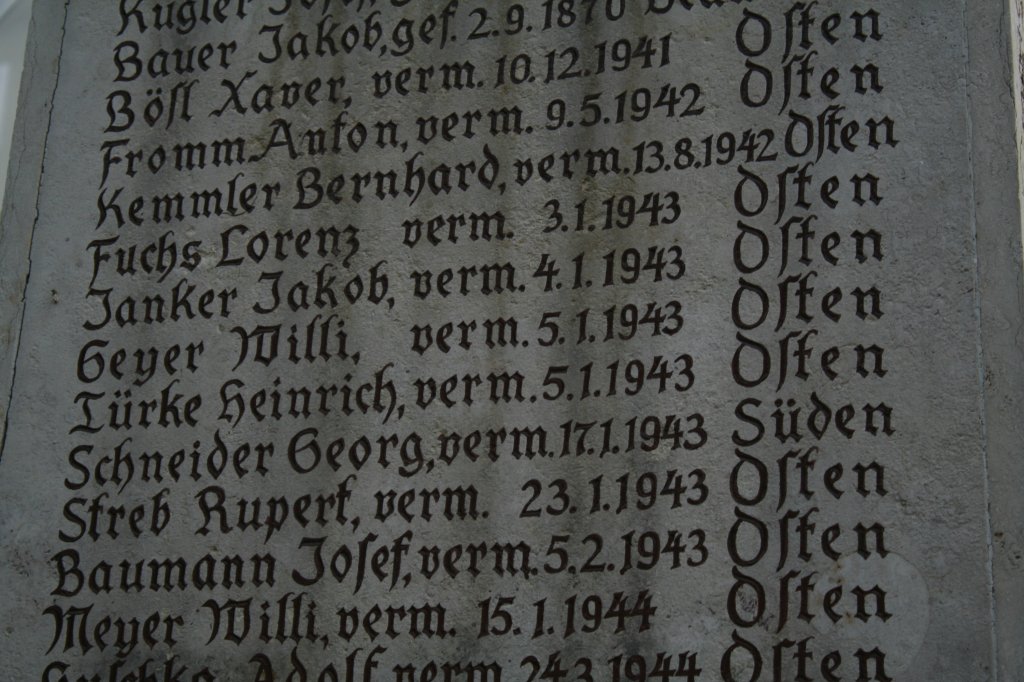 Kugler
Bauer Jakob, gef. 2.9.1870
Böſl Xaver, verm. 10.12.1941 Oſten
Fromm Anton, verm. 9.5.1942 Oſten
Kemmler Bernhard, verm. 13.8.1942 Oſten
Fuchs Lorenz verm. 3.1.1943 Oſten
Janker Jakob, verm. 4.1.1943 Oſten
Geyer Willi, verm. 5.1.1943 Oſten
Türke Heinrich, verm. 5.1.1943 Oſten
Schneider Georg, verm. 17.1.1943 Süden
Streb Rupert, verm. 23.1.1943 Oſten
Baumann Joſef, verm. 5.2.1943 Oſten
Meyer Willi, verm. 15.1.1944 Oſten
Adolf verm. 24.3.1944 Oſten